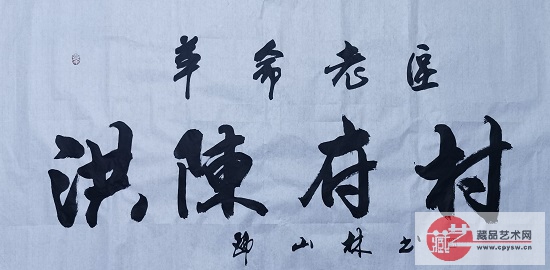 革命老區
洪陳府村
山林书
藏艺
藏品艺术网
www.cpysw.cn